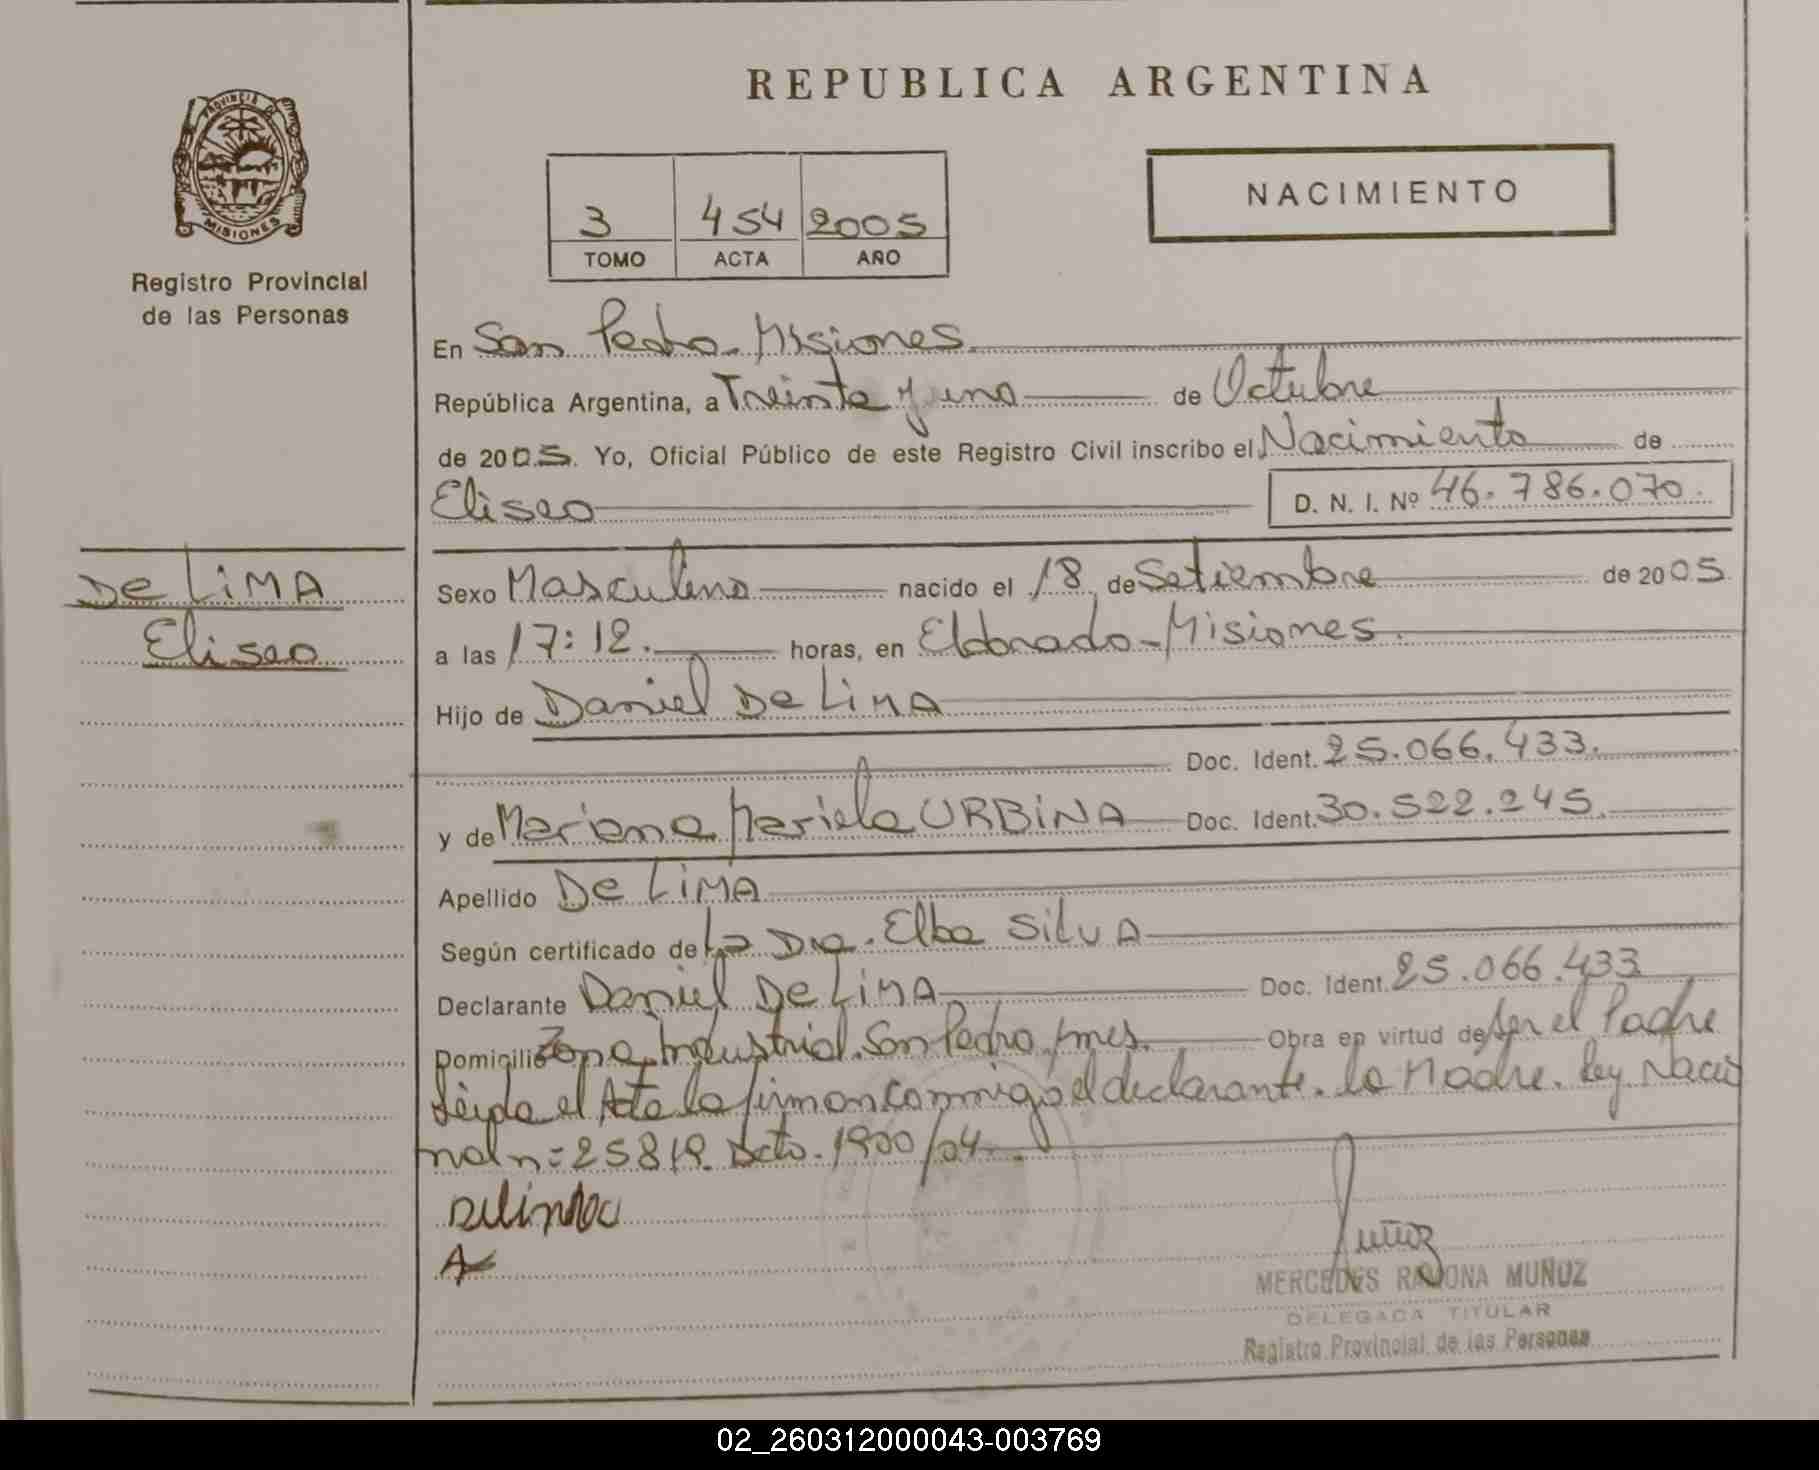 REPUBLICA ARGENTINA
PROVINCIA DE
MISIONES
Registro Provincial
de las Personas
NACIMIENTO
3 454 2005
TOMO ACTA AÑO
En San Pedro - Misiones
República Argentina, a Treinta y uno de Octubre
de 2005. Yo, Oficial Público de este Registro Civil inscribo el Nacimiento de
Eliseo D. N. I. Nº 46.786.070.
De LiMA
Eliseo
Sexo Masculino nacido el 18 de Setiembre de 2005
a las 17:12. horas, en Eldorado - Misiones.
Hijo de Daniel De LiMA
Doc. Ident. 25.066.433.
y de Mariana Mariela URBiNA Doc. Ident. 30.522.245.
Apellido De LiMA
Según certificado de La Dra. Elba SilvA
Declarante Daniel De LiMA Doc. Ident. 25.066.433
Domicilio Zona Industrial. San Pedro, Mnes. Obra en virtud de Ser el Padre
Leída el Acta la firman conmigo el declarante. la Madre. Ley Nacio
nal n= 25819. Dcto. 1900/04.
Muñoz
MERCEDES RAMONA MUÑOZ
DELEGADA TITULAR
Registro Provincial de las Personas
02_260312000043-003769